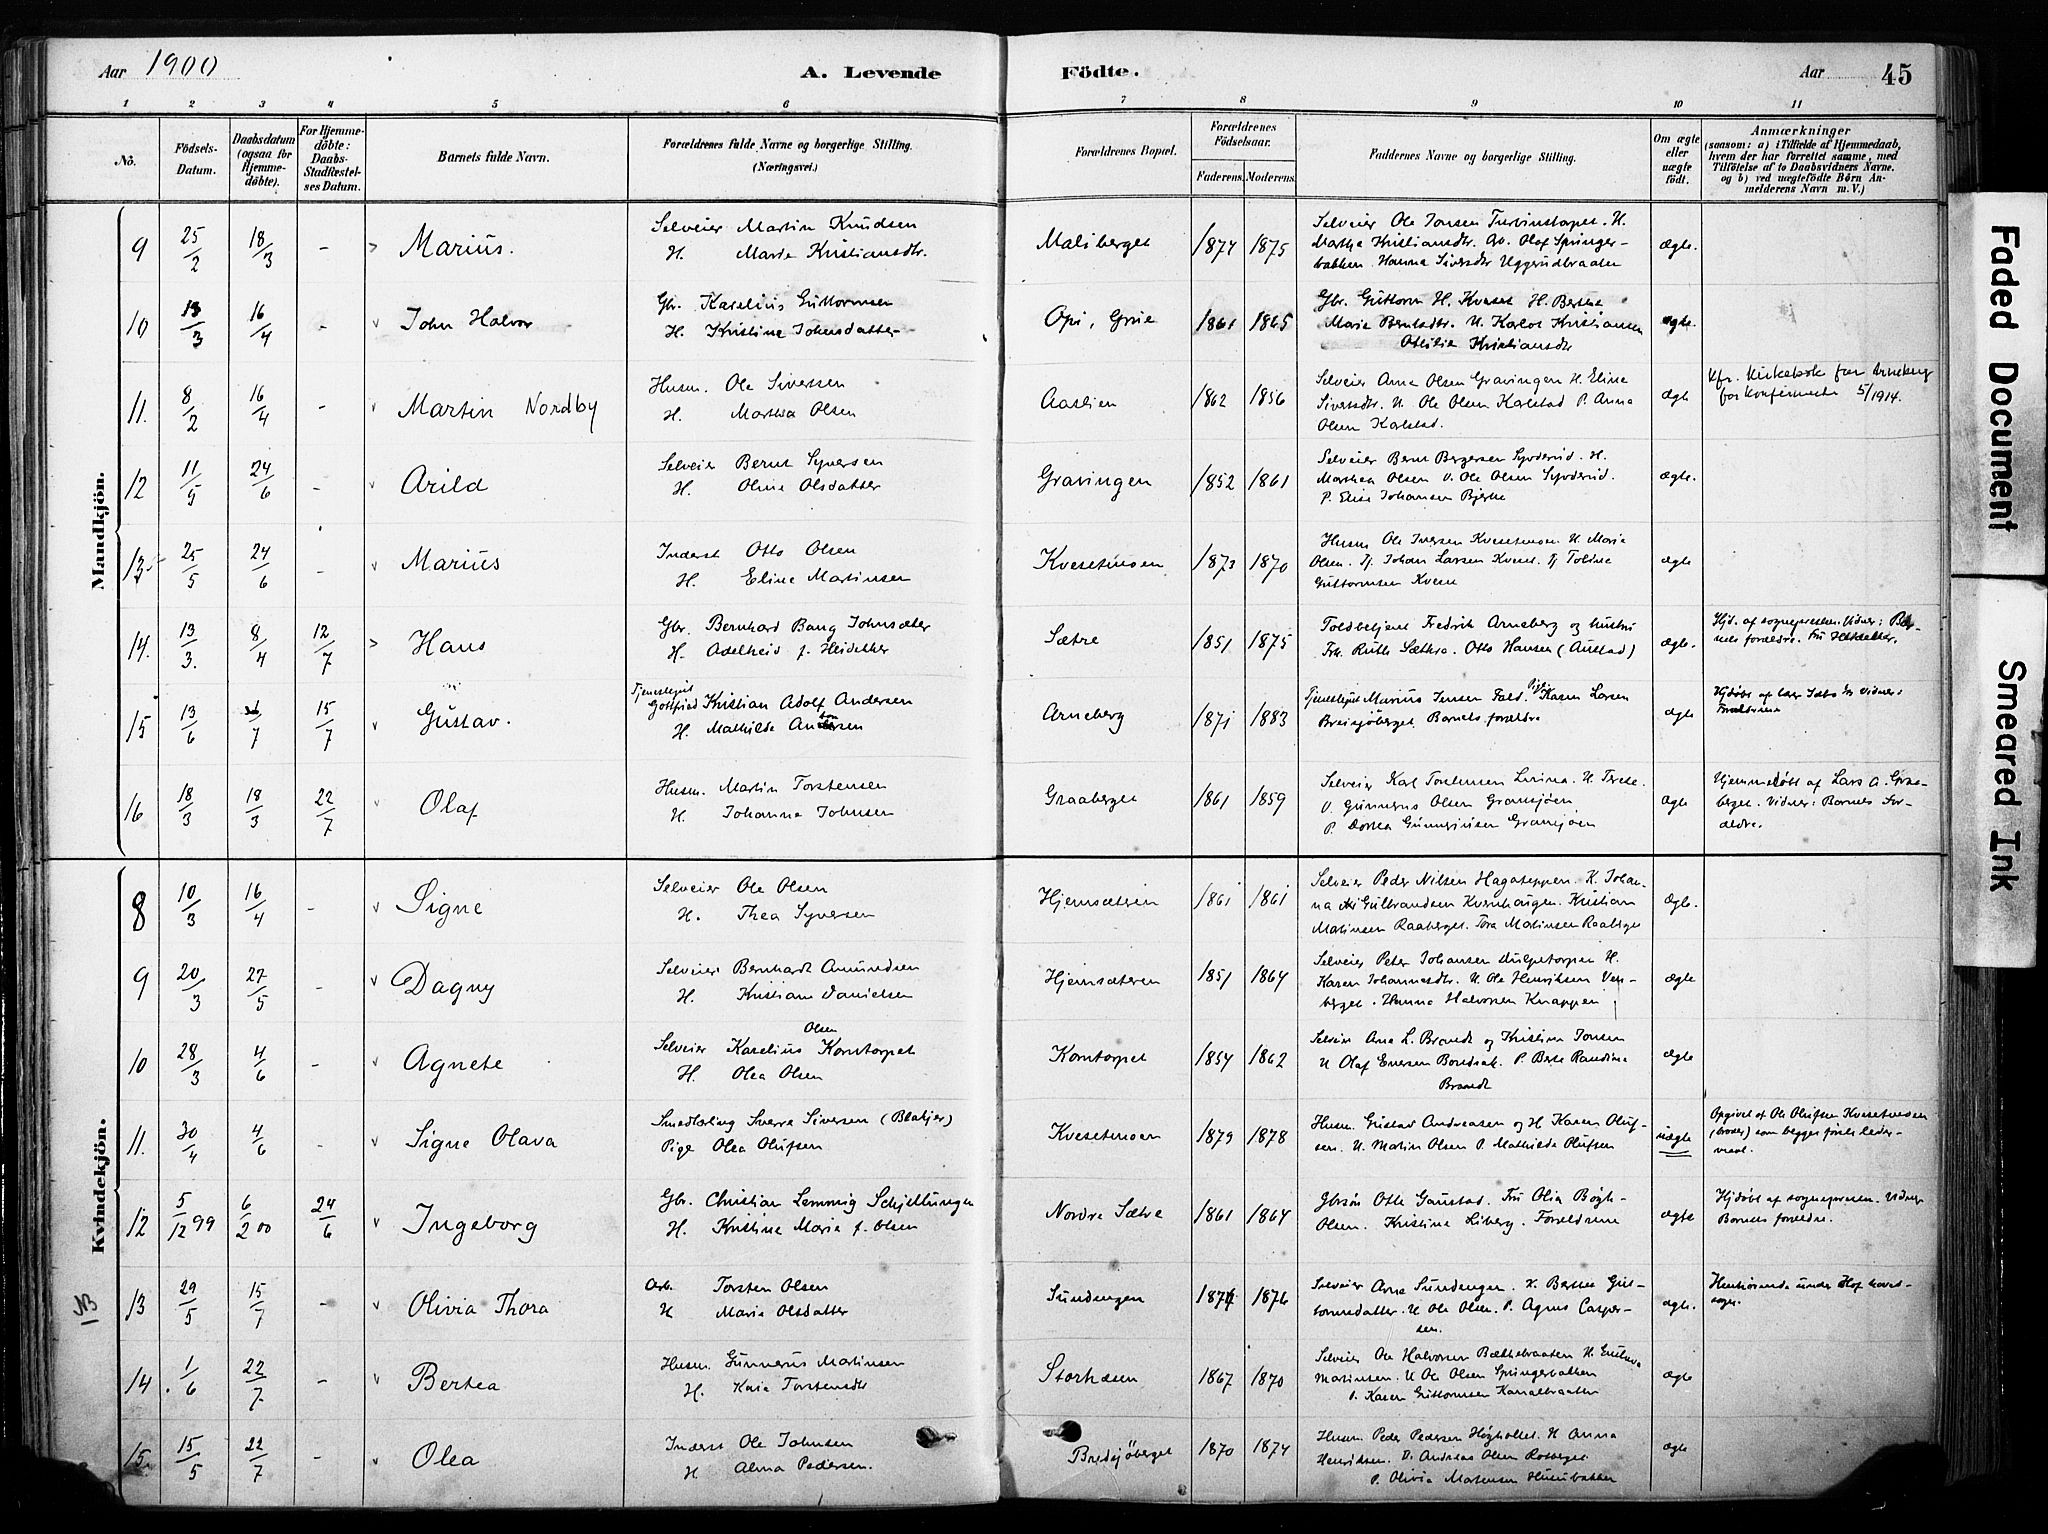 Aar 1900 A. Levende Födte. Aar 45
1 2 3 4 5 6 7 8 9 10 11
No.
Födsels-Datum.
Daabsdatum (ogsaa for Hjemme-døbte).
For Hjemme-døbte: Daabs-Stadfæstel-ses Datum.
Barnets fulde Navn.
Forældrenes fulde Navne og borgerlige Stilling.
(Næringsvei.)
Forældrenes Bopæl.
Forældrenes Födselsaar.
Faderens. Moderens.
Faddernes Navne og borgerlige Stilling.
Om ægte eller uægte födt.
Anmærkninger
(saasom: a) i Tilfælde af Hjemmedaab, hvem der har forrettet samme, med Tilföielse af to Daabsvidners Navne. og b) ved uægtefödte Börn Anmelderens Navn m.V.)
Mandkjön.
9 25/2 18/3 - Marius. Selveier Martin Knudsen
H. Marie Kristiansdtr. Maliberget 1874 1875 Selveier Ole Jonsen H.
Martha Kristiansdtr. Olaf Springer-
bakken Hanna Siversdtr Uggerudbraaten ægte.
10 13/3 16/4 - John Halvor Gbr. Karelius Guttormsen
H. Kristine Johnsdatter Opi, Grue 1861 1865 Gbr. Guttorm H. Kveset H. Berthe
Marie Berntsdtr. U. Karlot Kristiansen
Otilie Kristiansdtr ægte.
11. 8/2 16/4 - Martin Nordby Husm. Ole Siversen
H. Marthea Olsen Aaslien 1862 1856 Selveier Arne Olsen Gravingen H. Eline
Siversdtr. U. Ole Olsen Karlstad P. Anna
Olsen Karlstad. ægte Kfr. Kirkebok for Arneberg
for konfirmerte 5/1914.
12 11/5 24/6 - Arild Selveier Bernt Syversen
H. Oline Olsdatter Gravingen 1852 1861 Selveier Bernt Bergersen Syverud. H.
Marthea Olsen U. Ole Olsen Syverud.
P. Elise Johansen Bjerke ægte.
13 25/5 24/6 - Marius Inderst Otto Olsen
H. Eline Martinsen Kvesetmoen 1873 1870 Husm Ole Iversen Kvesetmoen H. Marie
Olsen. Tj. Johan Larsen Kveset. Tj Toline
Guttormsen Kveset ægte
14. 13/3. 8/4 12/7 Hans Gbr. Bernhard Bang Johnsæter
H. Adelheid f. Heidetker Sætre 1851 1875 Toldbetjent Fredrik Arneberg og hustru
Frk. Ruth Sæthre. Otto Hansen (Austad) ægte. Hjd. af sognepresten. Vidner: Bar-
nets forældre. Fru
15 13/6 /7 15/7 Gustav. Tjenestegut
Gottfred Kristian Adolf Andersen
H. Mathilde Andersen Arneberg 1871 1883 Tjenestegut Marius Jensen Fald. Pige Karen Larsen
Breisjöberget Barnets forældre ægte Hjdøbt af Vidner:
Forældrene
16 18/3 18/3 22/7 Olaf Husm. Martin Torstensen
H. Johanne Johnsen Graaberget 1861 1859 Selveier Karl Torstensen H. Terese.
U. Gunnerus Olsen Gransjöen
P. Dorthea Gunneriusen Gransjöen ægte Hjemmedøbt af Lars A. Graa-
berget. Vidner: Barnets For-
ældre.
Kvindekjön.
8 10/3 16/4 - Signe Selveier Ole Olsen
H. Thea Syversen Hjemsæteren 1861 1861 Selveier Peder Nilsen Hagateppen. H. Johan-
na Gulbrandsen Kvernhaugen. Kristian
Martinsen Raaberget. Tora Martinsen Raaberget ægte.
9 20/3 27/5 - Dagny Selveier Bernhardt Amundsen
H. Kristiane Danielsen Hjemsæteren 1851 1864 Selveier Peter Johansen H.
Karen Johannesdtr. U. Ole Henriksen Ven-
berget. Hanna Halvorsen Knappen ægte
10 28/3 4/6 - Agnete Olsen
Selveier Karelius Korntorpet
H. Olea Olsen Korntorpet 1854 1862 Selveier Arne L. Brandt og Kristine Jonsen
U Olaf Eversen P. Berte Randine
Brandt ægte
11. 30/4 4/6 - Signe Olava Smedlærling Sverre Siversen (Blakjer)
Pige Olea Olufsen Kvesetmoen 1879 1878 Husm. Gustav Andreasen og H Karen Oluf-
sen. U. Martin Olsen P. Mathilde Olufsen uægte Opgivet af Ole Olufsen Kvesetmoen
(broder) som begges første leier-
maal.
12 5/12 99 6/2 00 24/6 Ingeborg Gbr. Christian Lemmig Schjellungen
H. Kristine Marie f. Olsen Nordre Sætre 1861 1864 Gbrsön Otto Gaustad. Fru Olia Bögh-
Olsen. Kristine Liberg. Forældrene ægte Hjdøbt af sognepresten. Vidner
Barnets forældre.
13 29/5 15/7 - Olivia Thora Arb. Torsten Olsen
H Marie Olsdatter Sundengen 1874 1876 Selveier Arne Sundengen. H. Berthe Gut-
tormsdatter. U Ole Olsen. P. Agnes Casper-
sen. ægte. Henhörende under Hof hoved-
sogn.
NB
14. 1/6 22/7 - Bertea Husm. Gunnerus Martinsen
H. Kaia Torstensdtr Storhasen 1867 1870 Selveier Ole Halvorsen Bækkebraaten H. Gustava
Martinsen. U Ole Olsen Springerbakken
P. Karen Guttormsen Kanalbraaten ægte
15. 15/5 22/7 - Olea Inderst Ole Johnsen
H Alma Pedersen. Breisjöberget 1870 1874 Husm Peder Pedersen Högholtet. H Anna
Henriksen. U. Andreas Olsen Rotberget
P. Olivia Mortensen ægte
Faded Document
Smeared Ink